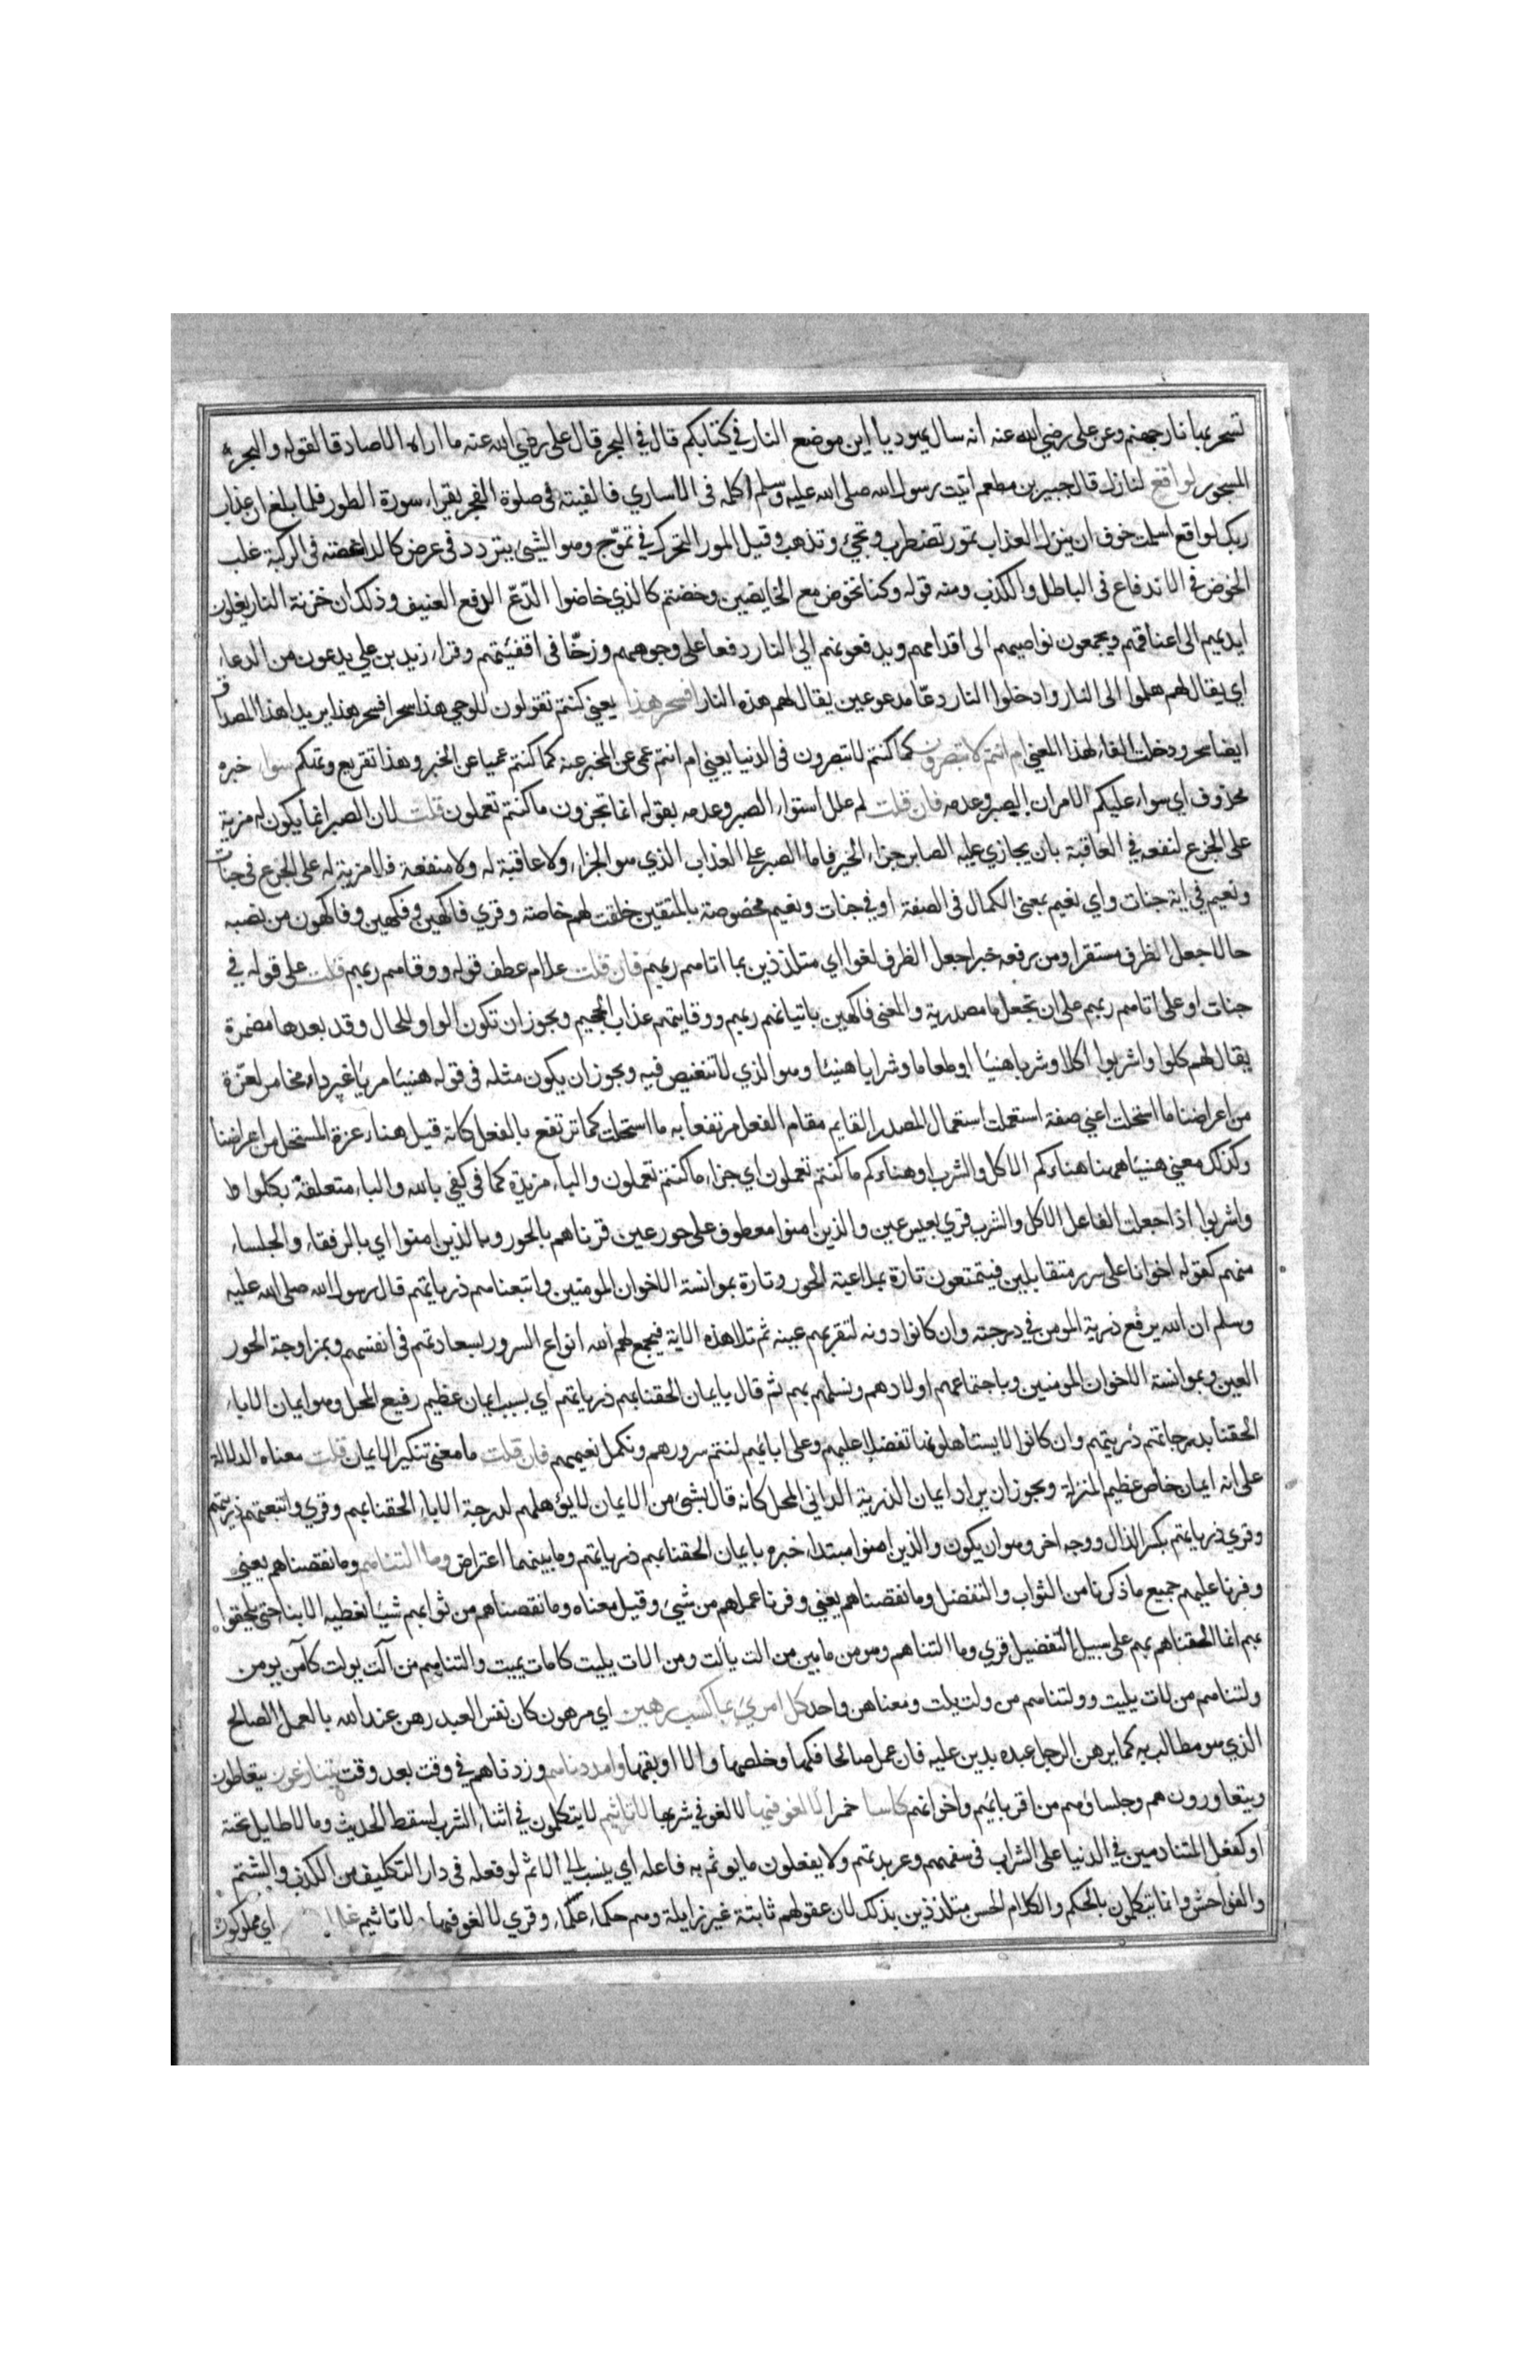 تسجر بها نار جهنم وعن علي رضي الله عنه انه سال يهوديا اين موضع النار في كتابكم قال في البحر قال علي رضي الله عنه ما اراه الا صادقا لقوله والبحر
المسجور لواقع لنازل قال جبير بن مطعم اتيت رسول الله صلى الله عليه وسلم اكلمه في الاساري فالفيته في صلوة الفجر يقراء سورة الطور فلما بلغ ان عذاب
ربك لواقع اسلمت خوف ان ينزل العذاب تمور تضطرب وتجئ وتذهب وقيل المور التحرك في تموّج وهو الشئ يتردد في عرض كالداغصة في الركبة غلب
الخوض في الاندفاع في الباطل والكذب ومنه قوله وكنا نخوض مع الخايضين وخضتم كالذي خاضوا الدّعّ الدفع العنيف وذلك ان خزنة النار يغلون
ايديهم الى اعناقهم ويجمعون نواصيهم الى اقدامهم ويدفعونهم الى النار دفعا على وجوههم وزخّا في اقفئيتهم وقراء زيد بن علي يدعون من الدعاء
اي يقال لهم هلموا الى النار وادخلوا النار دعّا مدعوعين يقال لهم هذه النار افسحر هذا يعني كنتم تقولون للوحي هذا سحر افسحر هذا يريد اهذا المصداق
ايضا سحر ودخلت الفاء لهذا المعني ام انتم لا تبصرون كما كنتم لا تبصرون في الدنيا يعني ام انتم عمى عن المخبر عنه كما كنتم عميا عن الخبر وهذا تقريع وتهكم سواء خبره
محذوف اي سواء عليكم الامران الصبر وعدمه فان قلت لم علل استواء الصبر وعدمه بقوله انما تجزون ما كنتم تعملون قلت لان الصبر انما يكون له مزية
على الجزع لنفعه في العاقبة بان يجازي عليه الصابر جزاء الخير فاما الصبر على العذاب الذي هو الجزاء ولا عاقبة له ولا منفعة فلا مزية له على الجزع في جنات
ونعيم في اية جنات واي نعيم بمعنى الكمال في الصفة او في جنات ونعيم مخصوصة بالمتقين خلقت لهم خاصة وقري فاكهين وفكهين وفاكهون من نصبه
حالا جعل الظرف مستقرا ومن رفعه خبرا جعل الظرف لغوا اي متلذذين بما اتاهم ربهم فان قلت علام عطف قوله ووقاهم ربهم قلت على قوله في
جنات او على اتاهم ربهم على ان تجعل ما مصدرية والمعنى فاكهين باتيانهم ربهم ووقايتهم عذاب الجحيم ويجوز ان تكون الواو للحال وقد بعدها مضمرة
يقال لهم كلوا واشربوا اكلا وشربا هنيئا او طعاما وشرابا هنيئا وهو الذي لا تنغيص فيه ويجوز ان يكون مثله في قوله هنيئا مريئا غير داء مخامر لعزّة
من اعراضنا ما استحلت اعني صفة استعملت استعمال المصدر القايم مقام الفعل مرتفعا به ما استحلت كما ترتفع بالفعل كانه قيل هناء عزة المستحل من اعراضنا
وكذلك معني هنيئا ههنا هناءكم الاكل والشرب او هناءكم ما كنتم تعملون اي جزاء ما كنتم تعملون والباء مزيدة كما في كفى بالله والباء متعلقة بكلوا
واشربوا اذا جعلت الفاعل الاكل والشرب قري بعيس عين والذين امنوا معطوف على حور عين قرناهم بالحور وبالذين امنوا اي بالرفقاء والجلساء
منهم كقوله اخوانا على سرر متقابلين فيتمتعون تارة بملاعبة الحور وتارة بموانسة الاخوان المومنين واتبعناهم ذرياتهم قال رسول الله صلى الله عليه
وسلم ان الله يرفع ذرية المومن في درجته وان كانوا دونه لتقر بهم عينه ثم تلا هذه الاية فيجمع لهم الله انواع السرور بسعادتهم في انفسهم وبمزاوجة الحور
العين وبموانسة الاخوان المومنين وباجتماعهم اولادهم ونسلهم بهم ثم قال بايمان الحقنا بهم ذرياتهم اي بسبب ايمان عظيم رفيع المحل وهو ايمان الاباء
الحقنا بدرجاتهم ذريتهم وان كانوا لا يستاهلونها تفضلا عليهم وعلى ابائهم لنتم سرورهم ونكمل نعيمهم فان قلت ما معنى تنكير الايمان قلت معناه الدلالة
على انه ايمان خاص عظيم المنزلة ويجوز ان يراد ايمان الذرية الداني المحل كانه قال بشئ من الايمان لا يؤهلهم لدرجة الاباء الحقنا بهم وقري واتبعتهم ذريتهم
وقري ذرياتهم بكسر الذال ووجه اخر وهو ان يكون والذين امنوا مبتداء خبره بايمان الحقنا بهم ذرياتهم وما بينهما اعتراض وما التناهم وما نقصناهم يعني
وفرنا عليهم جميع ما ذكرنا من الثواب والتفضل وما نقصناهم يعني وفرنا عملهم من شئ وقيل معناه وما نقصناهم من ثوابهم شيئا نعطيه الابنا حتى يلحقوا
بهم انما الحقناهم بهم على سبيل التفضيل قري وما التناهم وهو من ما بين من الت يألت ومن الات يليت كامات يميت والتناهم من آلت يولت كآمن يومن
ولتناهم من لات يليت وولتناهم من ولت يلت ومعناهن واحد كل امرئ بما كسب رهين اي مرهون كان نفس العبد رهن عند الله بالعمل الصالح
الذي هو مطالب به كما يرهن الرجل عبده بدين عليه فان عمل صالحا فكها وخلصها والا اوبقها وامددناهم وزدناهم في وقت بعد وقت يتنازعون يتعاطون
ويتعاورون هم وجلساؤهم من اقربائهم واخوانهم كاسا خمرا لا لغو فيها لا لغو في شربها لا تاثيم لا يتكلمون في اثناء الشرب بسقط الحديث وما لا طايل تحته
او كفعل المتنادمين في الدنيا على الشراب في سفههم وعربدتهم ولا يفعلون ما يوثم به فاعله اي ينسب الى الاثم لو فعله في دار التكليف من الكذب والشتم
والفواحش وانما يتكلمون بالحكم والكلام الحسن متلذذين بذلك لان عقولهم ثابتة غير زايلة وهم حكماء علماء وقري لا لغو فيها لا تاثيم اي مملوكون